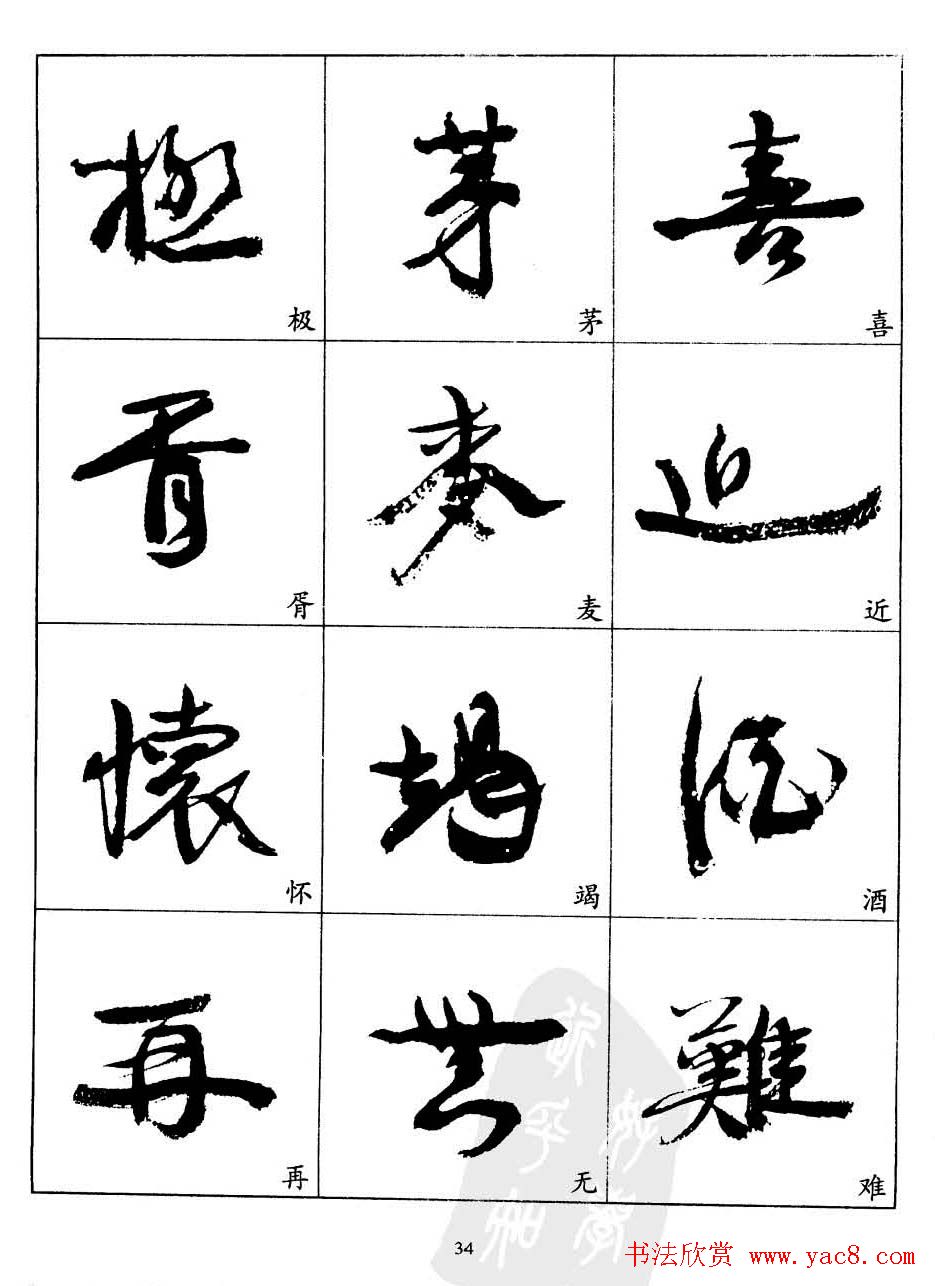 極 茅 喜
极 茅 喜
胥 麥 近
胥 麦 近
懷 竭 酒
怀 竭 酒
再 無 難
再 无 难
34
书法欣赏 www.yac8.com